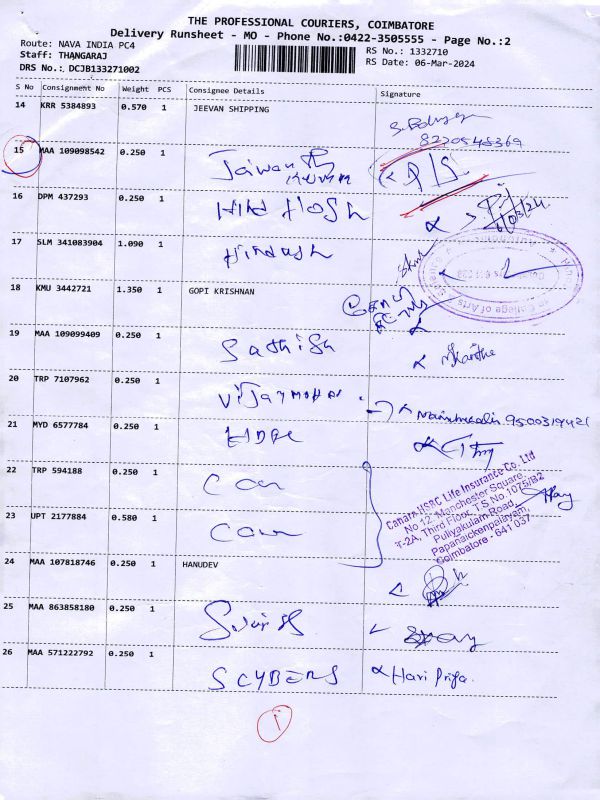 THE PROFESSIONAL COURIERS, COIMBATORE
Delivery Runsheet - MO - Phone No.:0422-3505555 - Page No.:2
Route: NAVA INDIA PC4
Staff: THANGARAJ
DRS No.: DCJB133271002
RS No.: 1332710
RS Date: 06-Mar-2024
S No Consignment No Weight PCS Consignee Details Signature
14 KRR 5384893 0.570 1 JEEVAN SHIPPING
8220545369
15 MAA 109098542 0.250 1
16 DPM 437293 0.250 1
6/03/24
17 SLM 341083904 1.090 1 Hindush
18 KMU 3442721 1.350 1 GOPI KRISHNAN
19 MAA 109099409 0.250 1 Sathish
20 TRP 7107962 0.250 1 Vijaymohan
21 MYD 6577784 0.250 1
22 TRP 594188 0.250 1 Can
Canara HSBC Life Insurance Co. Ltd
No 12, Manchester Square,
T-2A, Third Floor, T.S.No.1075/B2
Puliyakulam Road,
Papanaickenpalayam,
Coimbatore - 641 037
23 UPT 2177884 0.580 1 Can
24 MAA 107818746 0.250 1 HANUDEV
25 MAA 863858180 0.250 1
26 MAA 571222792 0.250 1 SCYBERS Hari Priya
1